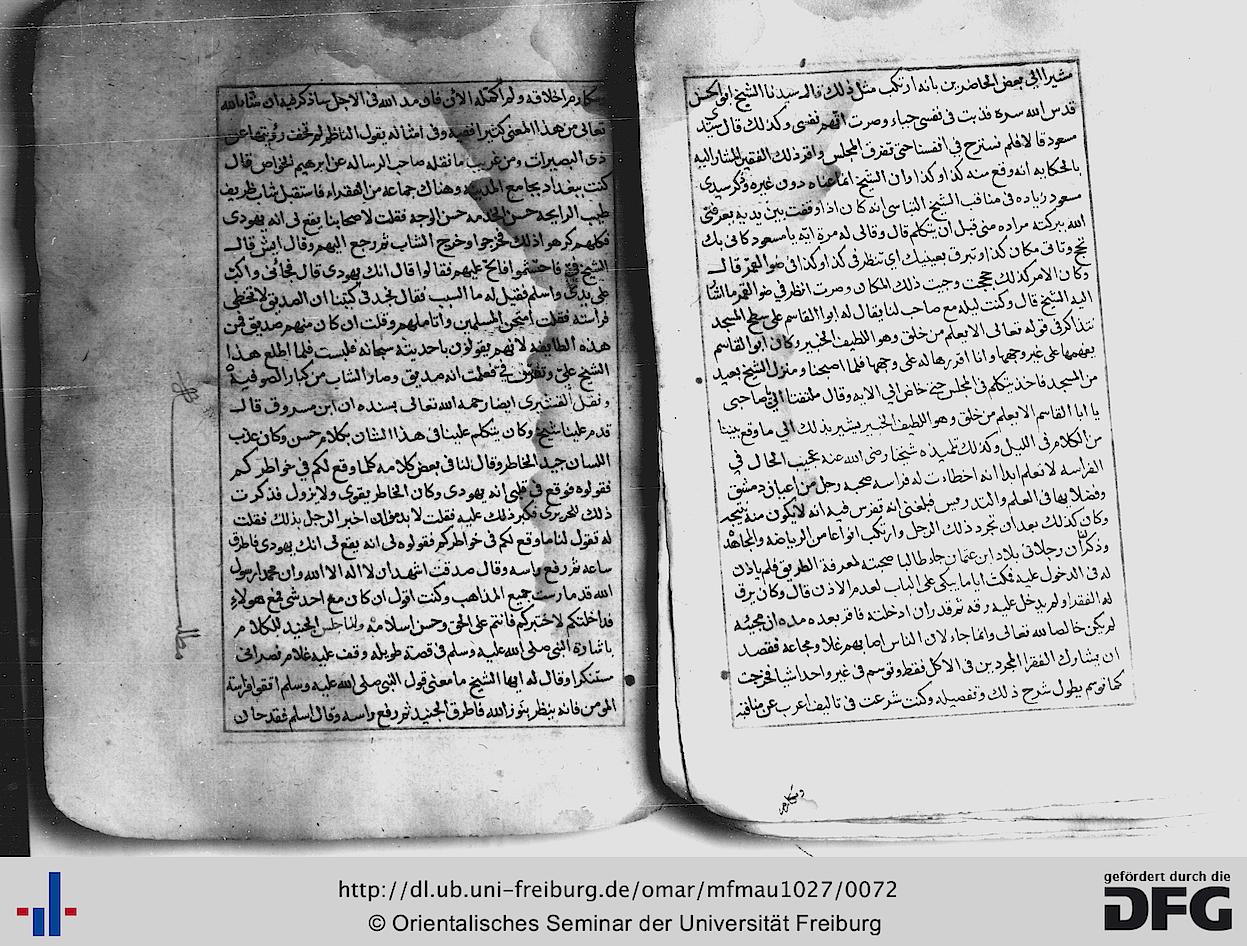 مشيرا الى بعض الحاضرين بانه ارتكب مثل ذلك قال سيدنا الشيخ ابو الحسن
قدس الله سره فذبت في نفسي حياء وصرت اتهم نفسي وكذلك قال سيدي
مسعود قالا فلم نسترح في انفسنا حتى تفرق المجلس واقر ذلك الفقير المشار اليه
بالحكايه انه وقع منه كذا وكذا وان الشيخ انما عناه دون غيره وذكر سيدي
مسعود زياده في مناقب الشيخ انه كان اذا وقفت بين يديه يعرضني
الله ببركته مراده مني قبل ان يتكلم قال وقال لي مرة انه يا مسعود كاني بك
تحج وتاتي مكان كذا وتبرق بعينيك اي تنظر في كذا وكذا في ضوء القمر قال
وكان الامر كذلك حججت وجيت ذلك المكان وصرت انظر في ضوء القمر ما اشار
اليه الشيخ قال وكنت ليله مع صاحب لنا يقال له ابو القاسم على سطح المسجد
نتذاكر في قوله تعالى الا يعلم من خلق وهو اللطيف الخبير وكان ابو القاسم
يفهمها على غير وجهها وانا اقررها له على وجهها فلما اصبحنا ومنزل الشيخ بعيد
من المسجد فاخذ يتكلم في المجلس حتى خاض الى الايه وقال ملتفتا الى صاحبي
يا ابا القاسم الا يعلم من خلق وهو اللطيف الخبير يشير بذلك الى ما وقع بيننا
من الكلام في الليل وكذلك تلميذه شيخنا رضي الله عنه عجيب الحال في
الفراسه لا نعلم ابدا انه اخطات له فراسه صحبه رجل من اعيان دمشق
وفضلايها في العلم والتدريس فبلغني انه تفرس فيه انه لا يكون منه تجرد
وكان كذلك بعد ان تجرد ذلك الرجل وارتكب انواعا من الرياضه والمجاهدة
وذكر ان رجلا في بلاد ابن عثمان جاء طالبا صحبته لمعرفة الطريق فلم ياذن
له في الدخول عليه فمكث اياما يبكي على الباب لعدم الاذن قال وكان يرق
له الفقرا ولم يدخل عليه رقه ثم قدر ان ادخلته فاقر بعده مده ان مجيئه
لم يكن خالصا لله تعالى وانما جاء لان الناس اصابهم غلا ومجاعه فقصد
ان يشارك الفقرا المجردين في الاكل فقط وتوسم في غير واحد اشيا فخرجت
كما توسم يطول شرح ذلك وتفصيله وكنت شرعت في تاليف اعرب عن مناقبه
ومكارم
ومكارم اخلاقه ولم اكمله الان فان مد الله في الاجل ساذكر فيه ان شاء الله
تعالى من هذا المعنى كثيرا وفي امثاله يقول الناظم
ذي البصيرات ومن غريب ما نقله صاحب الرساله عن ابرهيم الخواص قال
كنت ببغداد بجامع المدينه وهناك جماعه من الفقراء فاستقبل شاب ظريف
طيب الرايحه حسن الخدمه حسن الوجه فقلت لاصحابنا يقع لي انه يهودي
فكلهم كرهوا ذلك فخرجوا وخرج الشاب ثم رجع اليهم وقال ايش قال
الشيخ في فاحتشموا فالح عليهم فقالوا قال انك يهودي قال فجاني واكب
على يدي واسلم فقيل له ما السبب فقال نجد في كتبنا ان الصديق لا تخطي
فراسته فقلت امتحن المسلمين واتاملهم وقلت ان كان منهم صديق فمن
هذه الطايفه لانهم يقولون باحديثه سبحانه فلبست فلما اطلع هذا
الشيخ علي وتفرس في فعلمت انه صديق وصار الشاب من كبار الصوفيه
ونقل القشيري ايضا رحمه الله تعالى بسنده ان ابن مسروق قال
قدم علينا شيخ وكان يتكلم علينا في هذا الشان بكلام حسن وكان عذب
اللسان جيد الخاطر وقال لنا في بعض كلامه كلما وقع لكم في خواطركم
فقولوه فوقع في قلبي انه يهودي وكان الخاطر يقوى ولا يزول فذكرت
ذلك للحريري فكبر ذلك عليه فقلت لا بد من ان اخبر الرجل بذلك فقلت
له تقول لنا ما وقع لكم في خواطركم فقولوه لي انه يقع لي انك يهودي فاطرق
ساعه ثم رفع راسه وقال صدقت اشهد ان لا اله الا الله وان محمدا رسول
الله قد مارست جميع المذاهب وكنت اقول ان كان مع احد شي فمع هولاء
فداخلتكم لاختبركم فانتم على الحق وحسن اسلامه ولما جلس الجنيد للكلام
باشارة النبي صلى الله عليه وسلم في قصة طويله وقف عليه غلام نصراني
متنكرا وقال له ايها الشيخ ما معنى قول النبي صلى الله عليه وسلم اتقوا فراسة
المومن فانه ينظر بنور الله فاطرق الجنيد ثم رفع راسه وقال اسلم فقد حان
مطلب
http://dl.ub.uni-freiburg.de/omar/mfmau1027/0072
© Orientalisches Seminar der Universität Freiburg
gefördert durch die
DFG